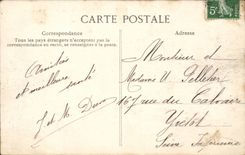 CARTE POSTALE
Correspondance
Tous les pays étrangers n'acceptent pas la
correspondance au recto, se renseigner à la poste.
Amitiés
et meilleure santé
J et M
Monsieur et
Madame A Pelletier
167 rue du Calvaire
Yvetot
Seine Inférieure